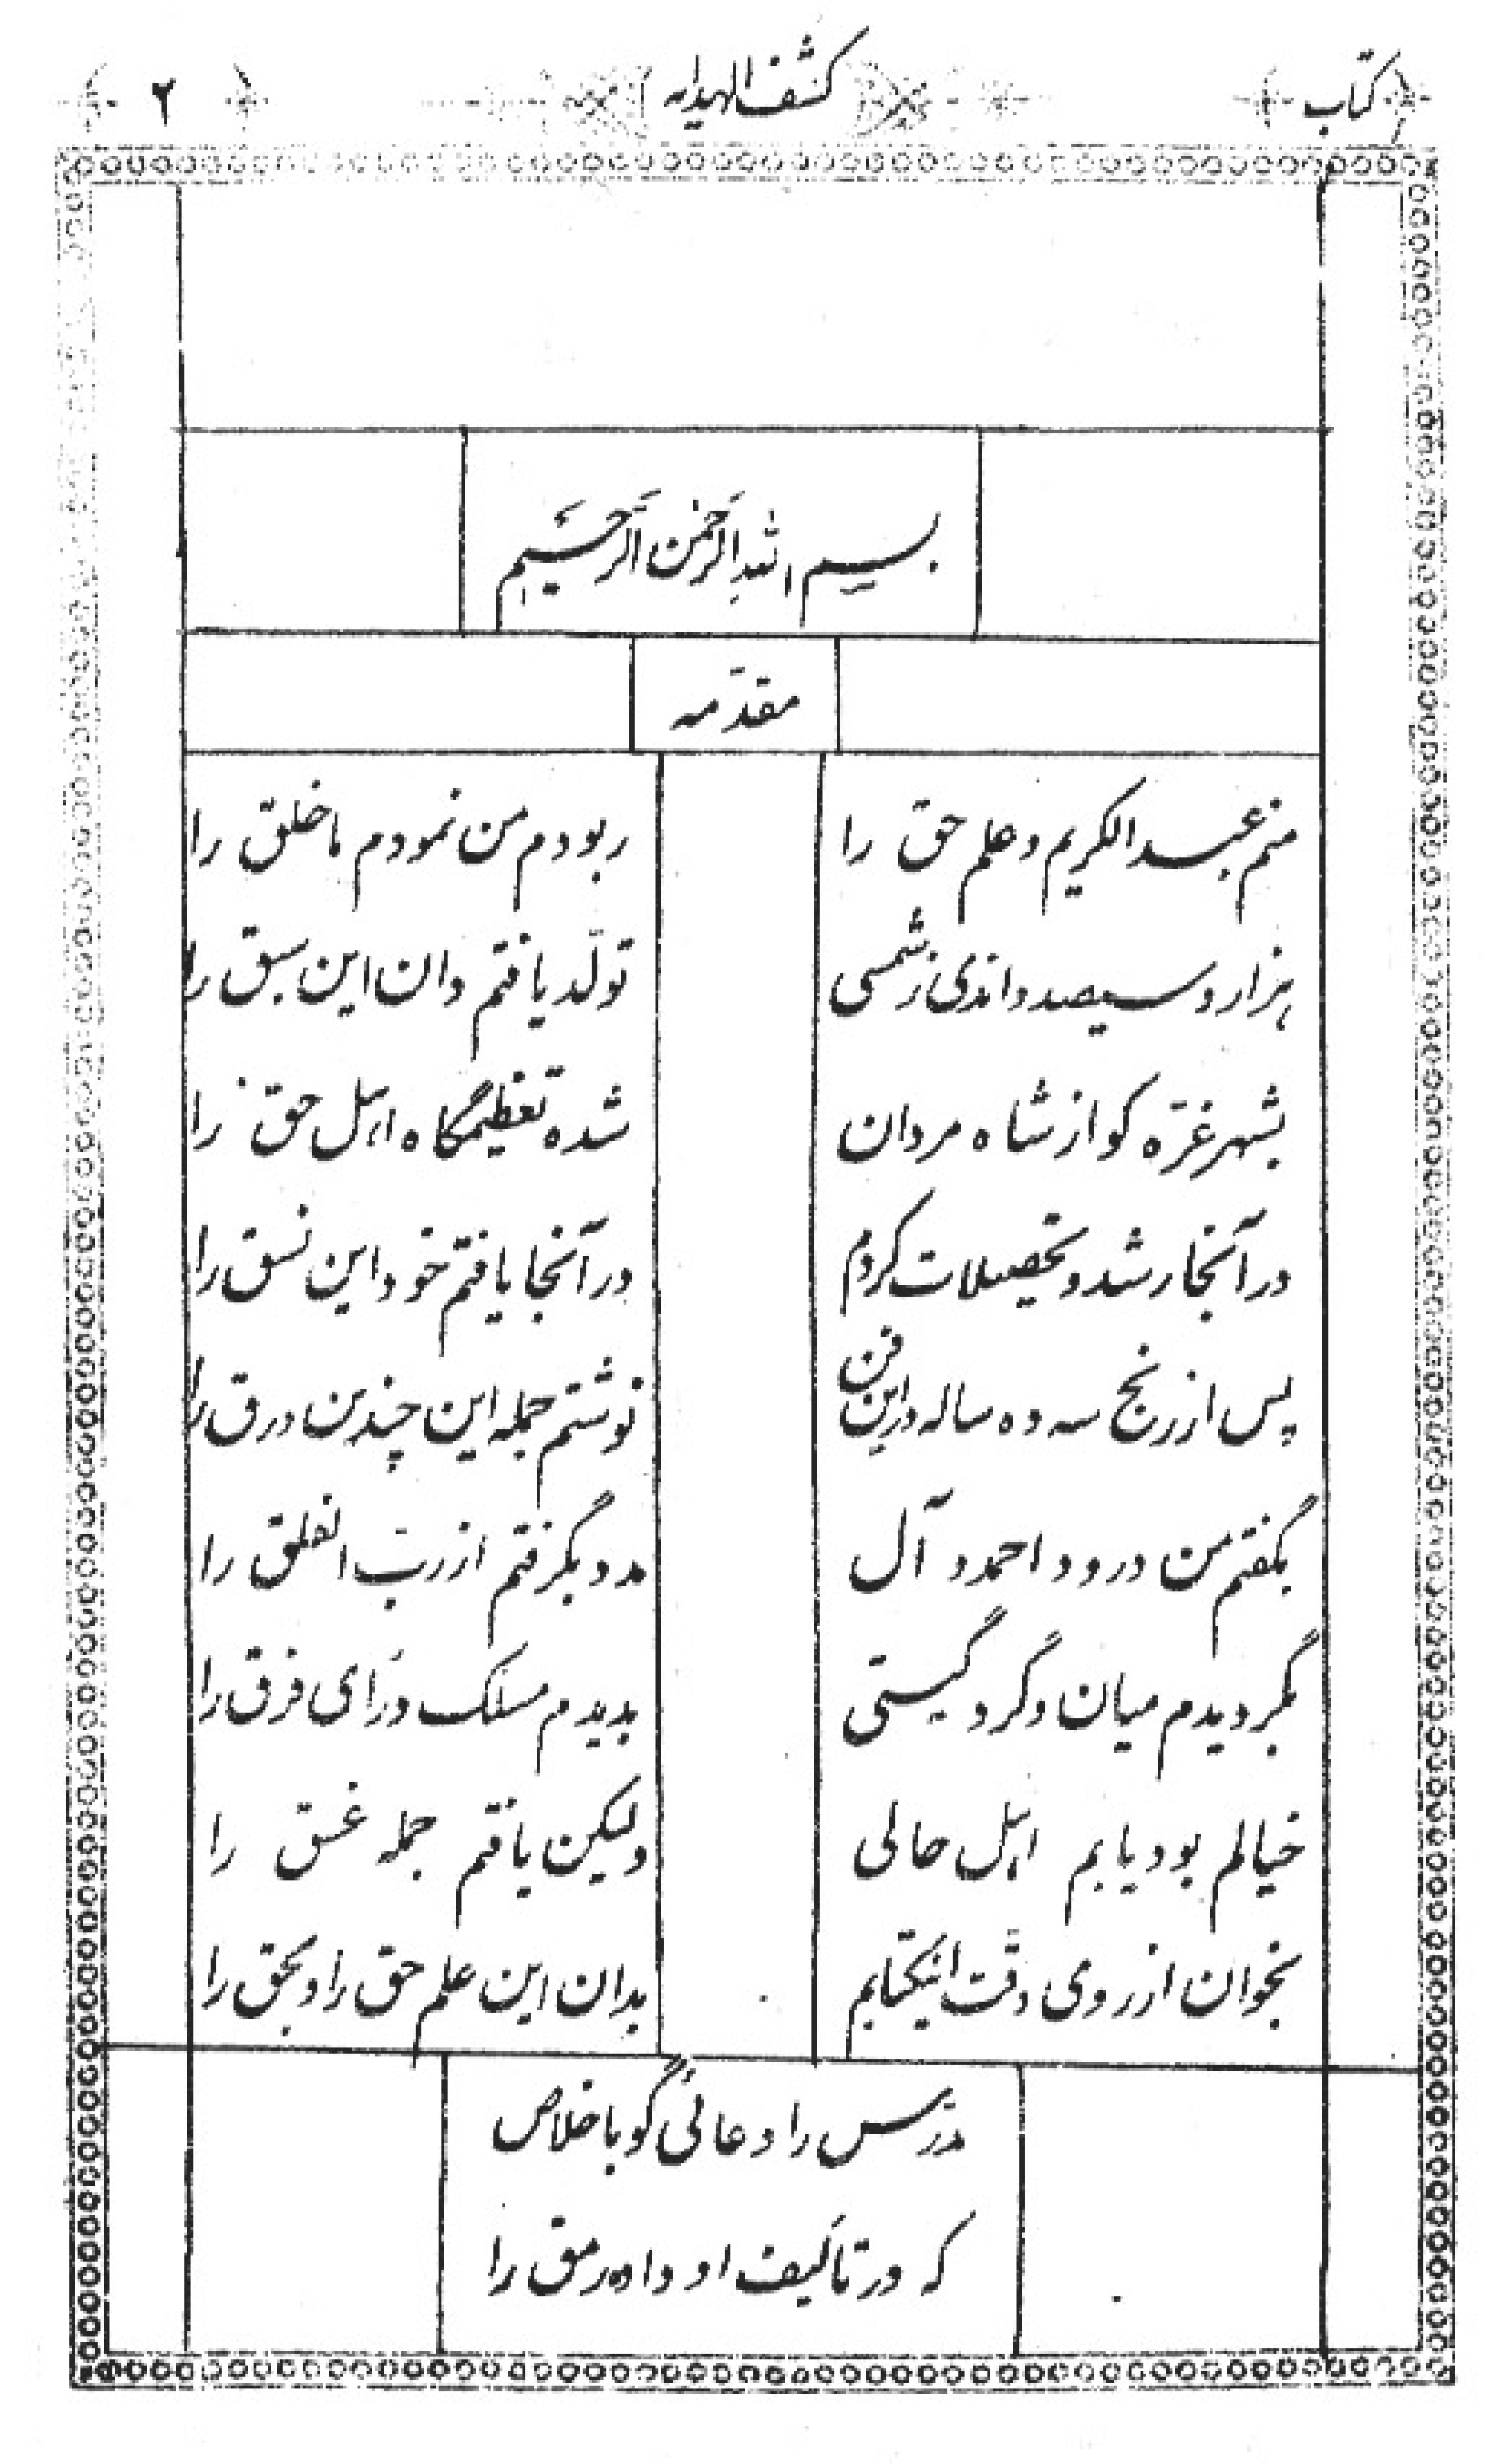 کتاب
کشف الهدایه
۲
بسم الله الرحمن الرحیم
مقدّمه
منم عبدالکریم و علم حق را
ربودم من نمودم ما خلق را
هزار و سیصد و اندی ز شمسی
تولّد یافتم دان این سبق را
بشهر غزّه کو از شاه مردان
شده تعظیمگاه اهل حق را
در آنجا رشد و تحصیلات کردم
در آنجا یافتم خود این نسق را
پس از رنج سه ده ساله در این فن
نوشتم جمله این چندین ورق را
بگفتم من درود احمد و آل
مدد بگرفتم از ربّ الفلق را
بگردیدم میان و گرد گیستی
بدیدم مسلک ورَای فرق را
خیالم بود یابم اهل حالی
ولیکن یافتم جمله غسق را
بخوان از روی دقّت اینکتابم
بدان این علم حق را و بحق را
مدرّس را دعائی گو باخلاص
که در تألیف او داده رمق را